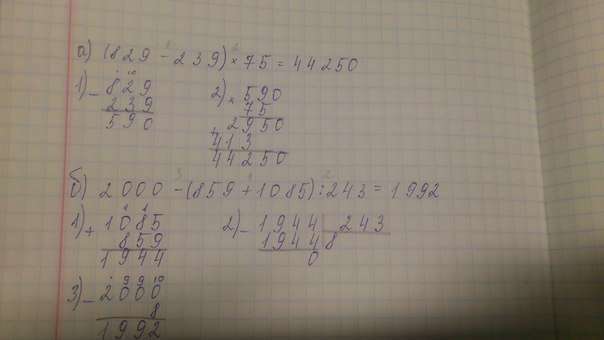 а) (829 - 239) × 75 = 44250
1) - 829
239
590
2) × 590
75
2950
+ 413
44250
б) 2000 - (859 + 1085) : 243 = 1992
1) + 1085
859
1944
2) - 1944 | 243
1944 8
0
3) - 2000
8
1992